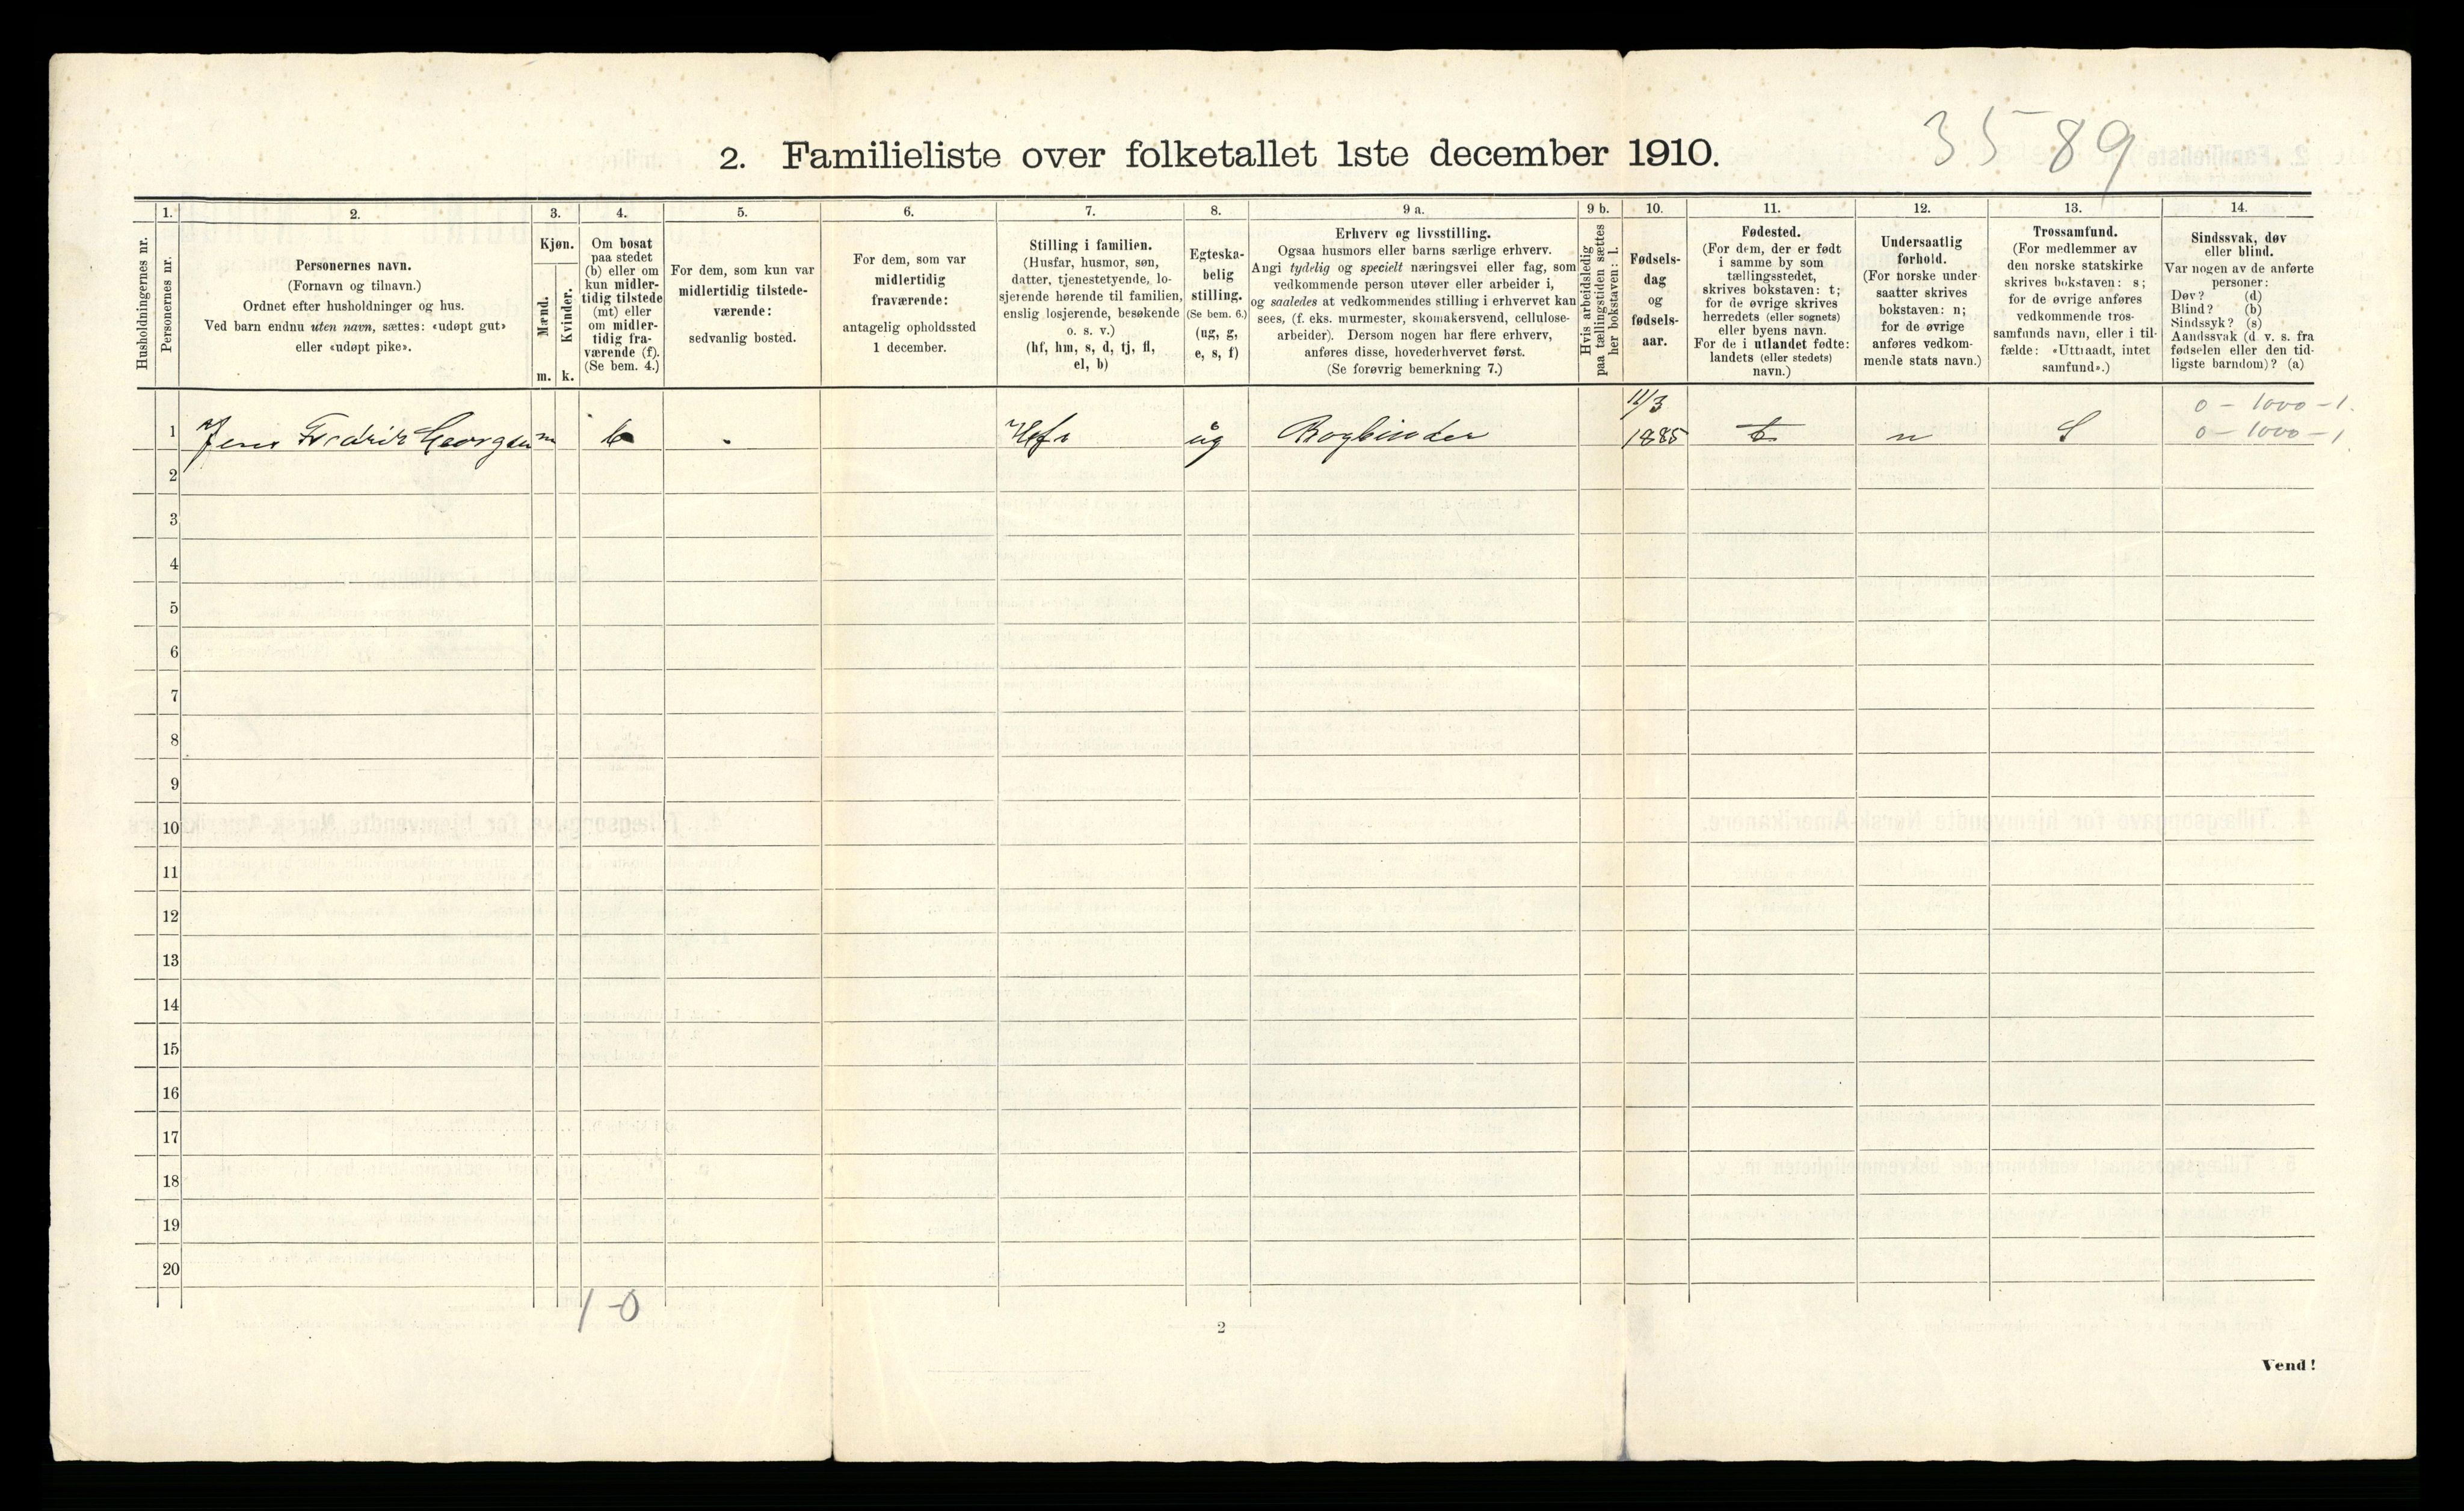 3589
2. Familieliste over folketallet 1ste december 1910.
1. 2. 3. 4. 5. 6. 7. 8. 9 a. 9 b. 10. 11. 12. 13. 14.
Husholdningernes nr.
Personernes nr.
Personernes navn.
(Fornavn og tilnavn.)
Ordnet efter husholdninger og hus.
Ved barn endnu uten navn, sættes: «udøpt gut»
eller «udøpt pike».
Kjøn.
Mænd.
Kvinder.
m. k.
Om bosat
paa stedet
(b) eller om
kun midler-
tidig tilstede
(mt) eller
om midler-
tidig fra-
værende (f).
(Se bem. 4.)
For dem, som kun var
midlertidig tilstede-
værende:
sedvanlig bosted.
For dem, som var
midlertidig
fraværende:
antagelig opholdssted
1 december.
Stilling i familien.
(Husfar, husmor, søn,
datter, tjenestetyende, lo-
sjerende hørende til familien,
enslig losjerende, besøkende
o. s. v.)
(hf, hm, s, d, tj, fl,
el, b)
Egteska-
belig
stilling.
(Se bem. 6.)
(ug, g,
e, s, f)
Erhverv og livsstilling.
Ogsaa husmors eller barns særlige erhverv.
Angi tydelig og specielt næringsvei eller fag, som
vedkommende person utøver eller arbeider i,
og saaledes at vedkommendes stilling i erhvervet kan
sees, (f. eks. murmester, skomakersvend, cellulose-
arbeider). Dersom nogen har flere erhverv,
anføres disse, hovederhvervet først.
(Se forøvrig bemerkning 7.)
Hvis arbeidsledig
paa tællingstiden sættes
her bokstaven: l.
Fødsels-
dag
og
fødsels-
aar.
Fødested.
(For dem, der er født
i samme by som
tællingsstedet,
skrives bokstaven: t;
for de øvrige skrives
herredets (eller sognets)
eller byens navn.
For de i utlandet fødte:
landets (eller stedets)
navn.)
Undersaatlig
forhold.
(For norske under-
saatter skrives
bokstaven: n;
for de øvrige
anføres vedkom-
mende stats navn.)
Trossamfund.
(For medlemmer av
den norske statskirke
skrives bokstaven: s;
for de øvrige anføres
vedkommende tros-
samfunds navn, eller i til-
fælde: «Uttraadt, intet
samfund».)
Sindssvak, døv
eller blind.
Var nogen av de anførte
personer:
Døv? (d)
Blind? (b)
Sindssyk? (s)
Aandssvak (d. v. s. fra
fødselen eller den tid-
ligste barndom)? (a)
0 - 1000 - 1.
1 Jens Fredrik Georgsen m b Hf ug Bogbinder 11/3 1885 t n S 0 - 1000 - 1
2
3
4
5
6
7
8
9
10
11
12
13
14
15
16
17
18
19
20
1-0
2
Vend!